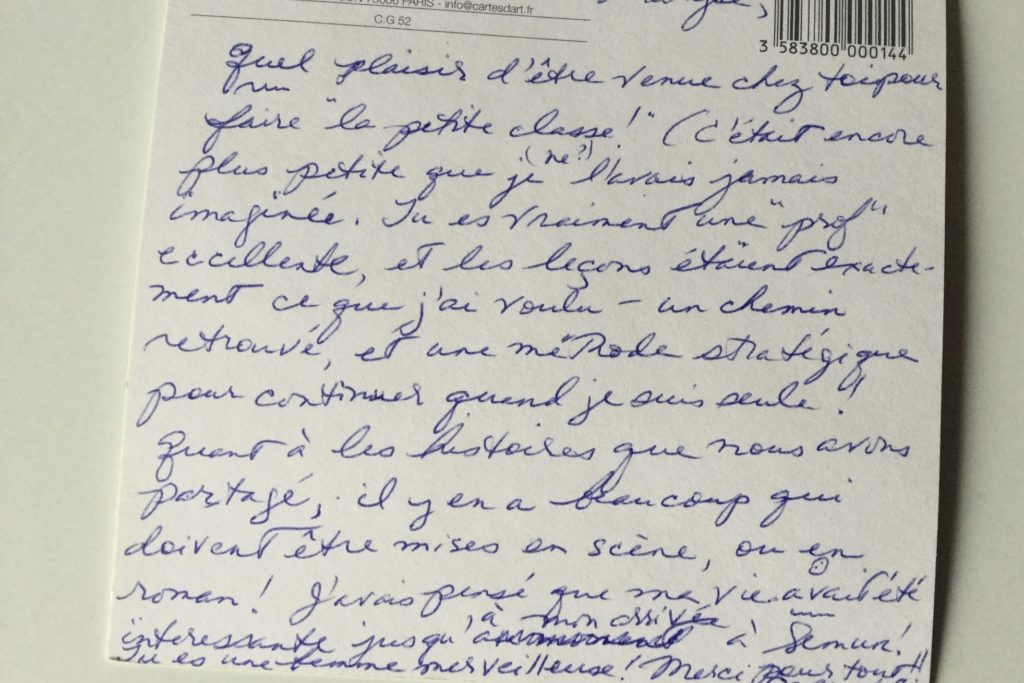 75006 PARIS - info@cartesdart.fr
C.G 52
3 583800 000144
Quel plaisir d'être venue chez toi pour
faire "la petite classe!" (C'était encore
plus petite que je (ne?) l'avais jamais
imaginée. Tu es vraiment une "prof"
excellente, et les leçons étaient exacte-
ment ce que j'ai voulu – un chemin
retrouvé, et une méthode stratégique
pour continuer quand je suis seule!
Quant à les histoires que nous avons
partagé, il y en a beaucoup qui
doivent être mises en scène, ou en
roman! J'avais pensé que ma vie avait été
intéressante jusqu'à mon arrivée à Semur!
Tu es une femme merveilleuse! Merci pour tout!!